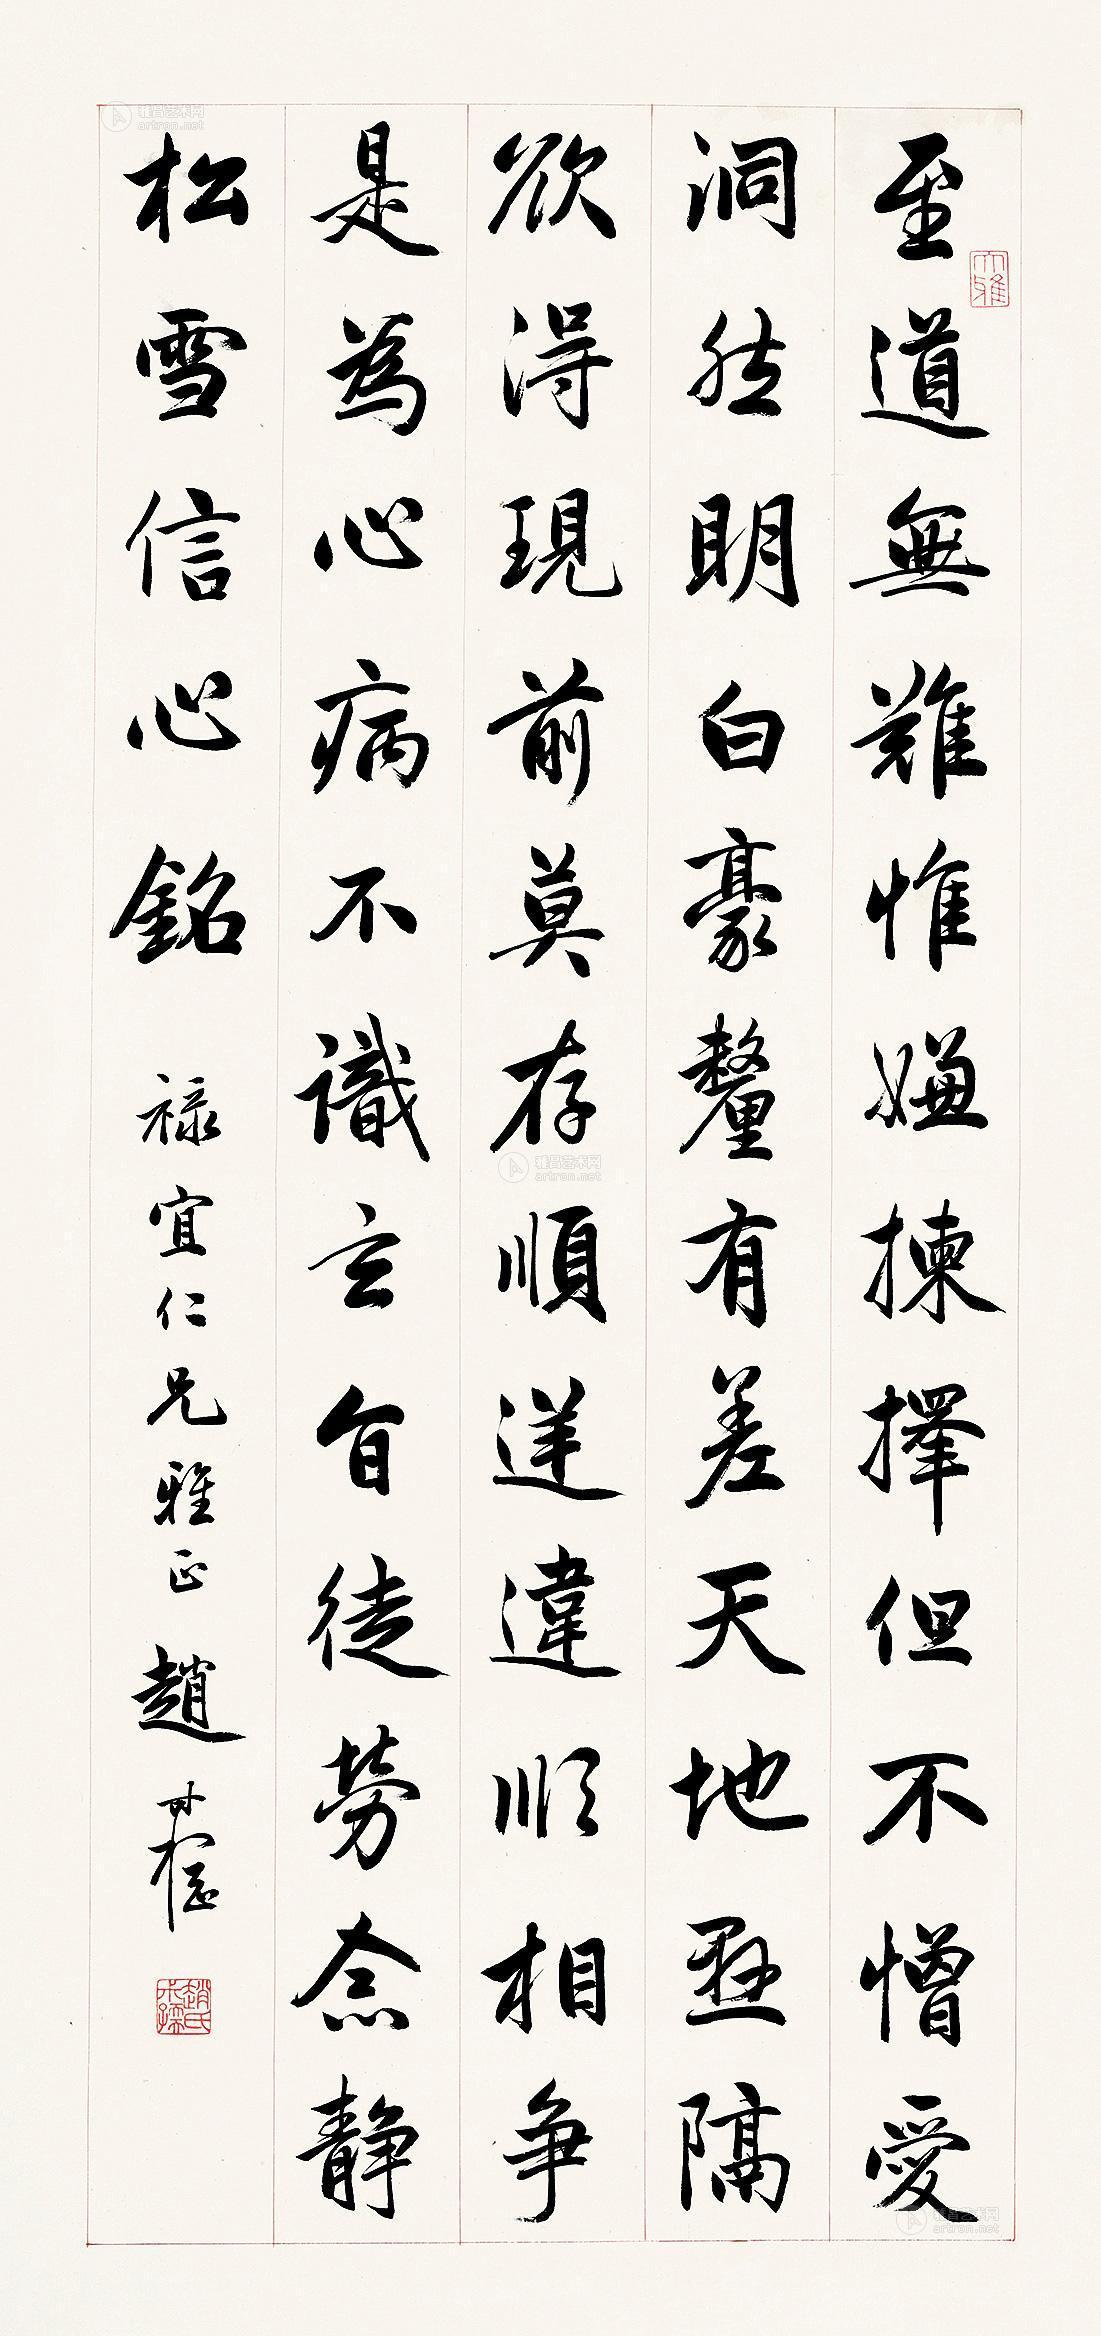 大雅
至道無難惟嫌揀擇但不憎愛
洞然明白豪釐有差天地懸隔
欲得現前莫存順逆違順相争
是為心病不識玄旨徒勞念静
松雪信心銘 禄宜仁兄雅正 趙時棡
趙氏尗孺
雅昌艺术网
artron.net
雅昌艺术网
artron.net
雅昌艺术网
artron.net